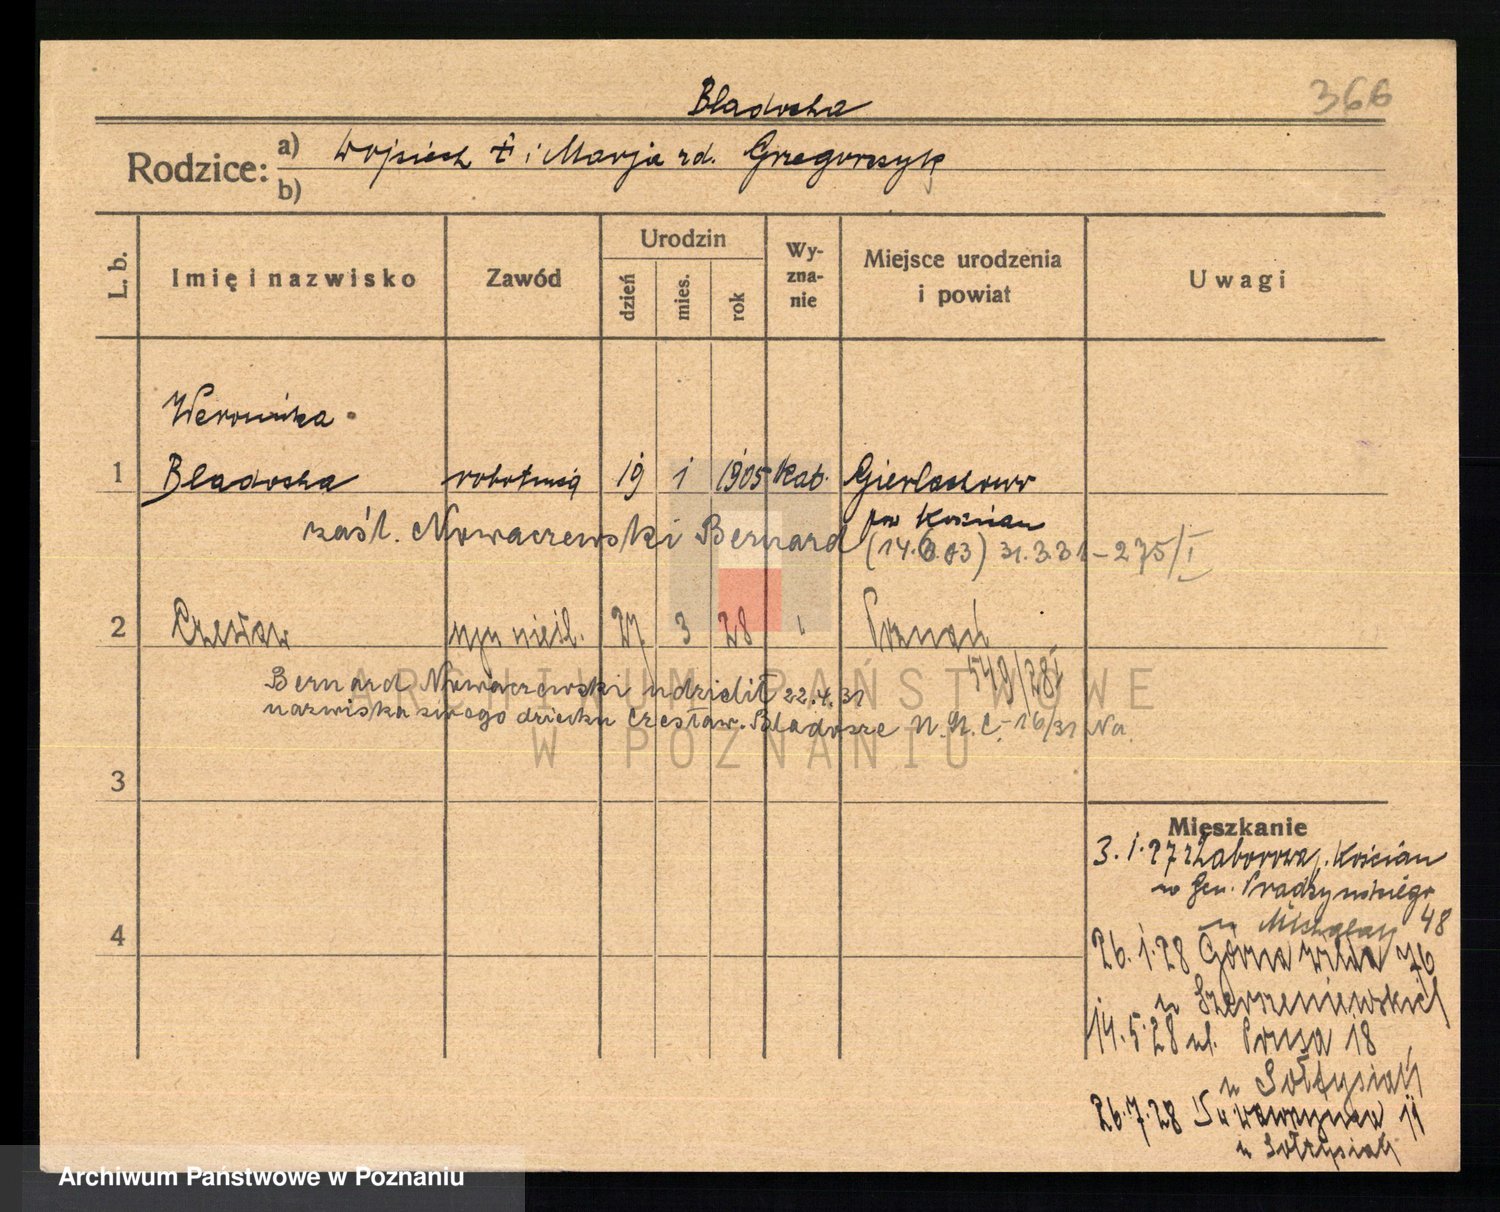 366
Bladocha
Rodzice: a) Wojciech † i Marja rd. Grzegorczyk
b)
L. b. Imię i nazwisko Zawód Urodzin dzień mies. rok Wy-zna-nie Miejsce urodzenia i powiat Uwagi
Weronika
1 Bladocha robotnica 19 1 1905 kat. Gierlachowo
pow Kościan
zaśl. Nowaczewski Bernard (14.8.03) 31.3.31 – 275/I
2 Czesław syn nieśl. 27 3 28 Poznań
549/28I
Bernard Nowaczewski udzielił 22.4.31
nazwiska swego dziecku Czesław. Bladosze U.S.C. 16/31 Na.
3
4
Mieszkanie
3.1.27 z Zaborowa, Kościan
Gen. Prądzyńskiego
u 48
26.1.28 Górna Wilda 76
u Szerszeniewskich
14.5.28 ul. Prusa 18
u Sołtysiak
26.7.28 Św Wawrzyńca 11
u Sołtysiak
ARCHIWUM PAŃSTWOWE
W POZNANIU
Archiwum Państwowe w Poznaniu